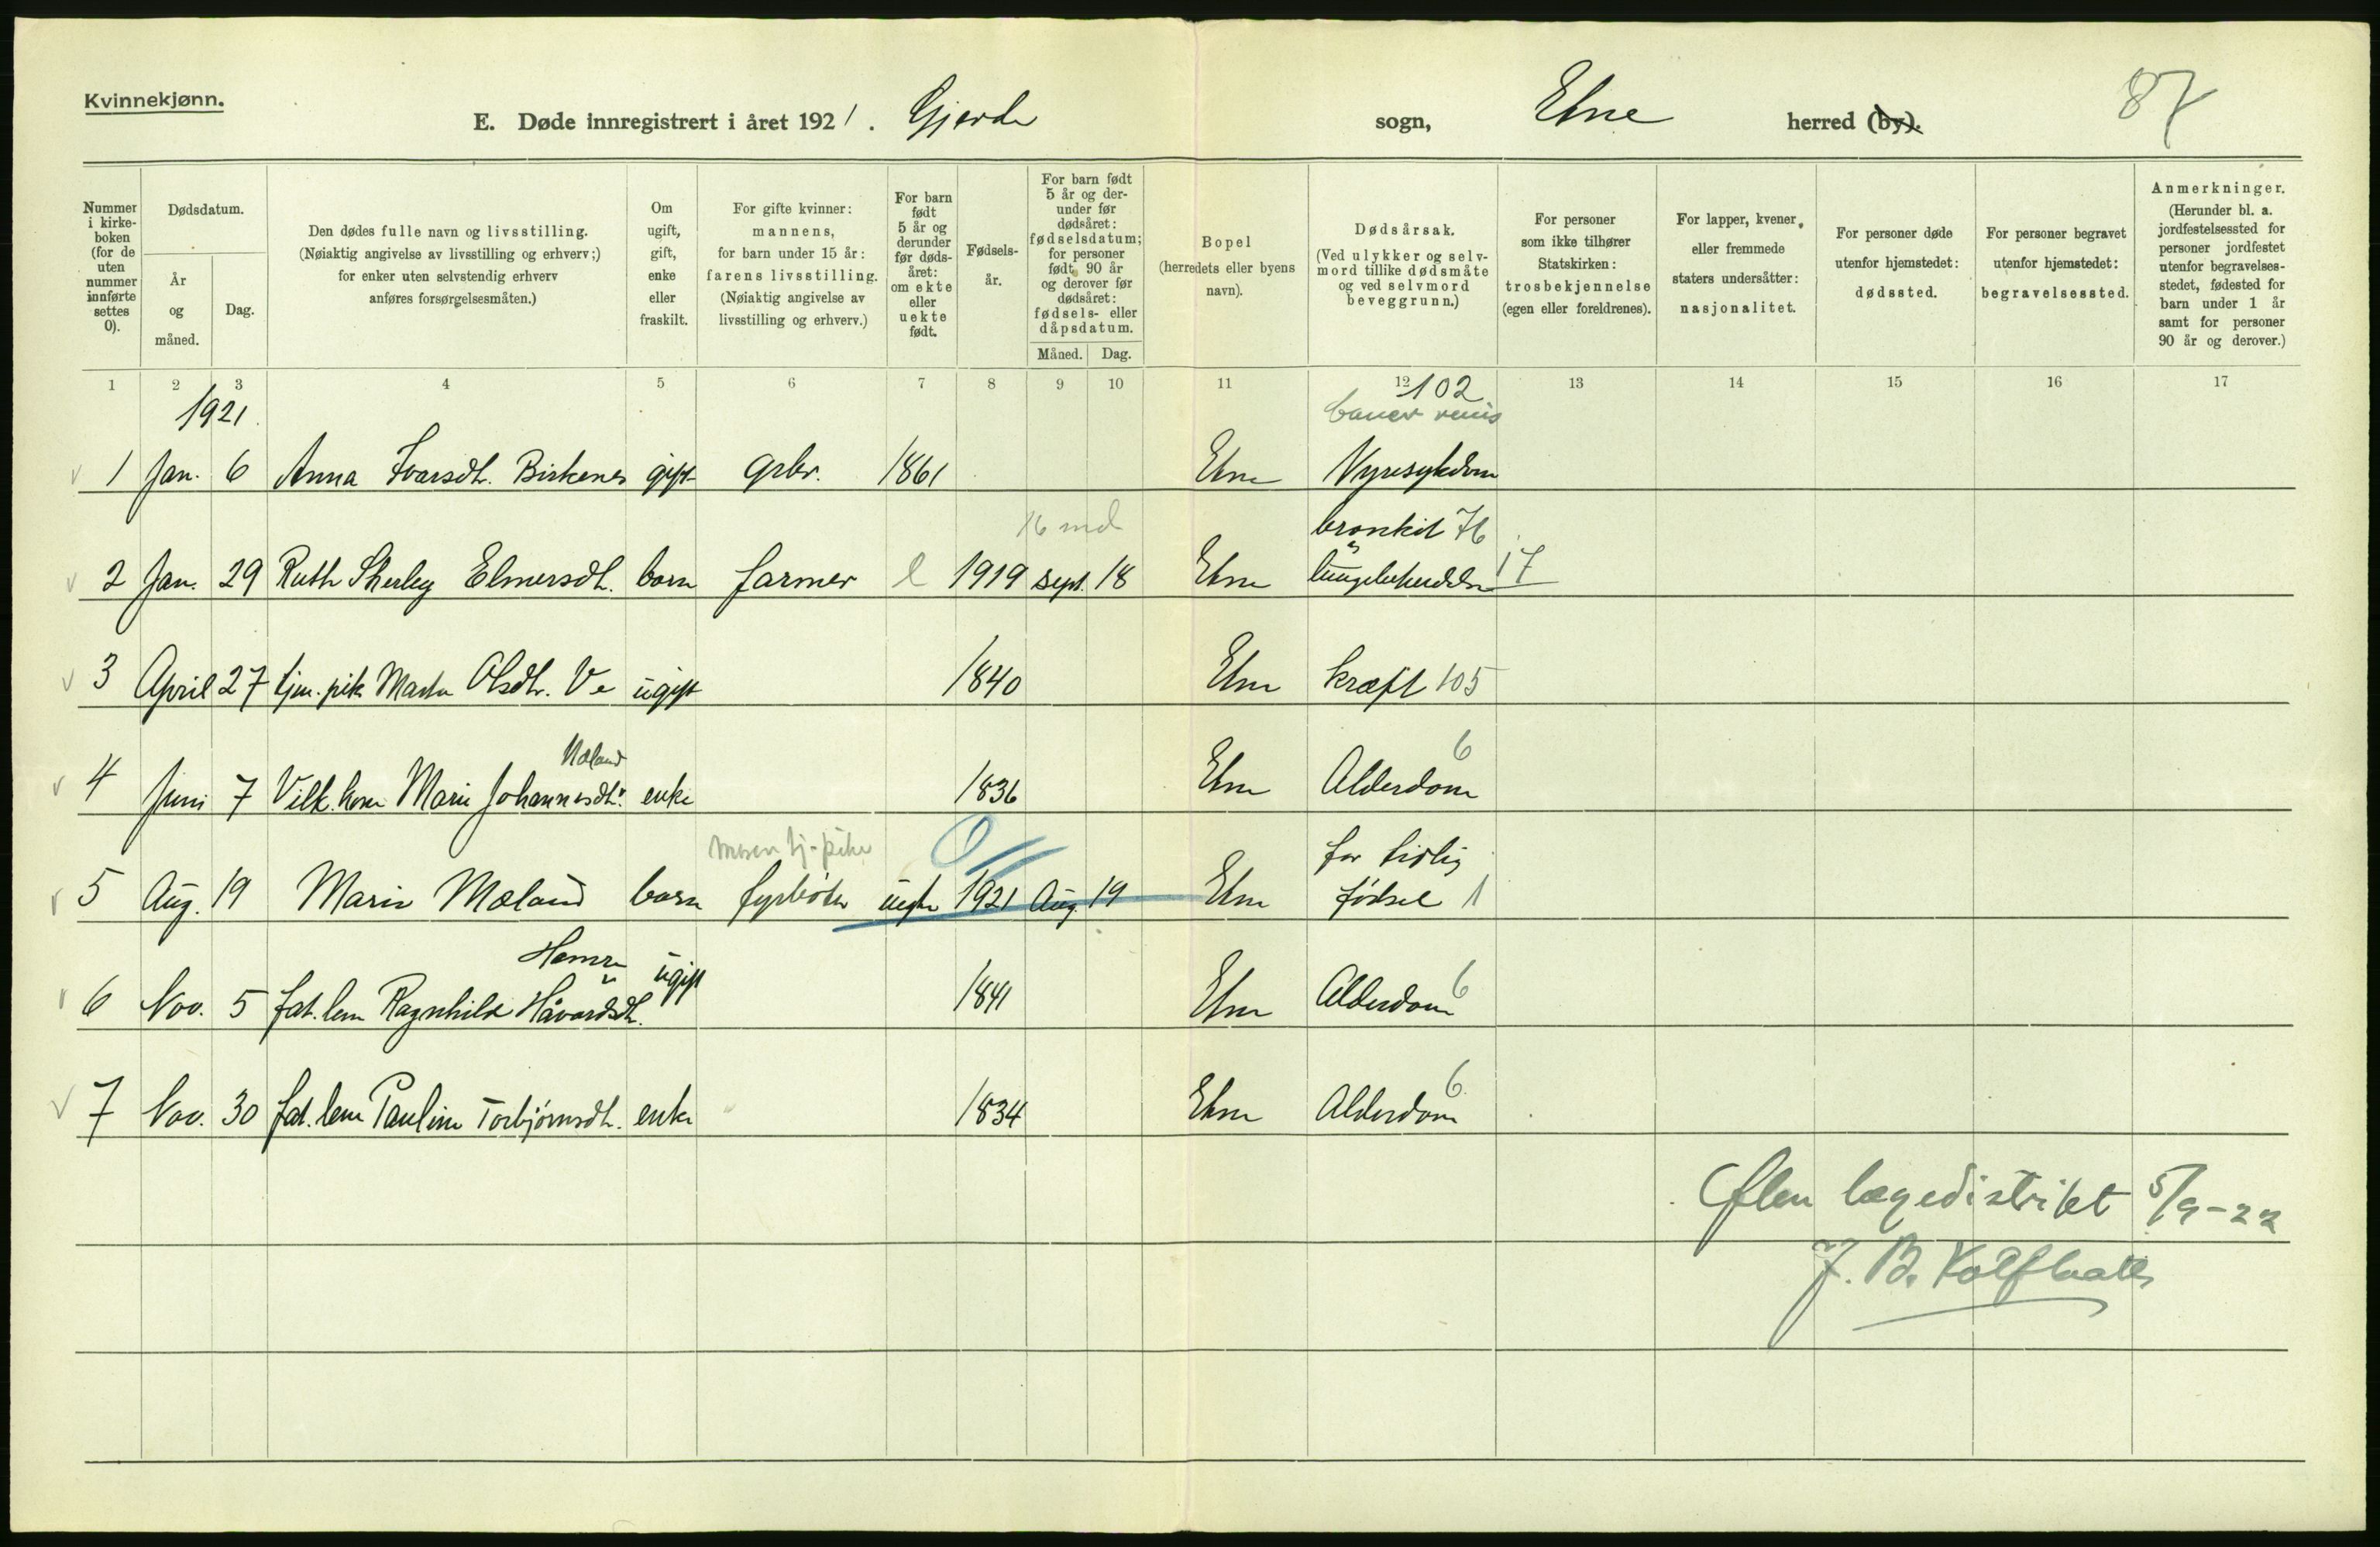 Kvinnekjønn.
E. Døde innregistrert i året 1921. Gjerde sogn, Etne herred (by).
87
Nummer i kirke-boken (for de uten nummer innførte settes 0).
Dødsdatum.
År og måned.
Dag.
Den dødes fulle navn og livsstilling. (Nøiaktig angivelse av livsstilling og erhverv;) for enker uten selvstendig erhverv anføres forsørgelsesmåten.)
Om ugift, gift, enke eller fraskilt.
For gifte kvinner: mannens, for barn under 15 år: farens livsstilling. (Nøiaktig angivelse av livsstilling og erhverv.)
For barn født 5 år og derunder før døds-året: om ekte eller uekte født.
Fødsels-år.
For barn født 5 år og der-under før dødsåret: fødselsdatum; for personer født 90 år og derover før dødsåret: fødsels- eller dåpsdatum.
Måned. Dag.
Bopel (herredets eller byens navn).
Dødsårsak. (Ved ulykker og selv-mord tillike dødsmåte og ved selvmord beveggrunn.)
For personer som ikke tilhører Statskirken: trosbekjennelse (egen eller foreldrenes).
For lapper, kvener, eller fremmede staters undersåtter: nasjonalitet.
For personer døde utenfor hjemstedet: dødssted.
For personer begravet utenfor hjemstedet: begravelsessted.
Anmerkninger. (Herunder bl. a. jordfestelsessted for personer jordfestet utenfor begravelses-stedet, fødested for barn under 1 år samt for personer 90 år og derover.)
1 2 3 4 5 6 7 8 9 10 11 12 13 14 15 16 17
1921. 102
cancer renis
1 Jan. 6 Anna Ivarsdt. Birkenes gift grbr. 1861 Etne Nyresykdom
16 md bronkit 76
2 Jan. 29 Ruth Sherley Elmersdt. barn farmer e 1919 sept. 18 Etne 17
3 April 27 tjen. pike Marta Olsdt. Ve ugift 1840 Etne kræft 105
Mæland 6
4 Juni 7 Vilk. kone Marie Johannesdt. enke 1836 Etne Alderdom
moren tj-pike 0 for tidlig
5 Aug. 19 Marie Mæland barn fyrbøter uegte 1921 Aug. 19 Etne fødsel 1
Hamre
6 Nov. 5 fat. lem Ragnhild Håvardsdt. ugift 1841 Etne Alderdom 6
7 Nov. 30 fat. lem Pauline Torbjørnsdt. enke 1834 Etne Alderdom 6
lægedistrikt 5/9-22
J. B.